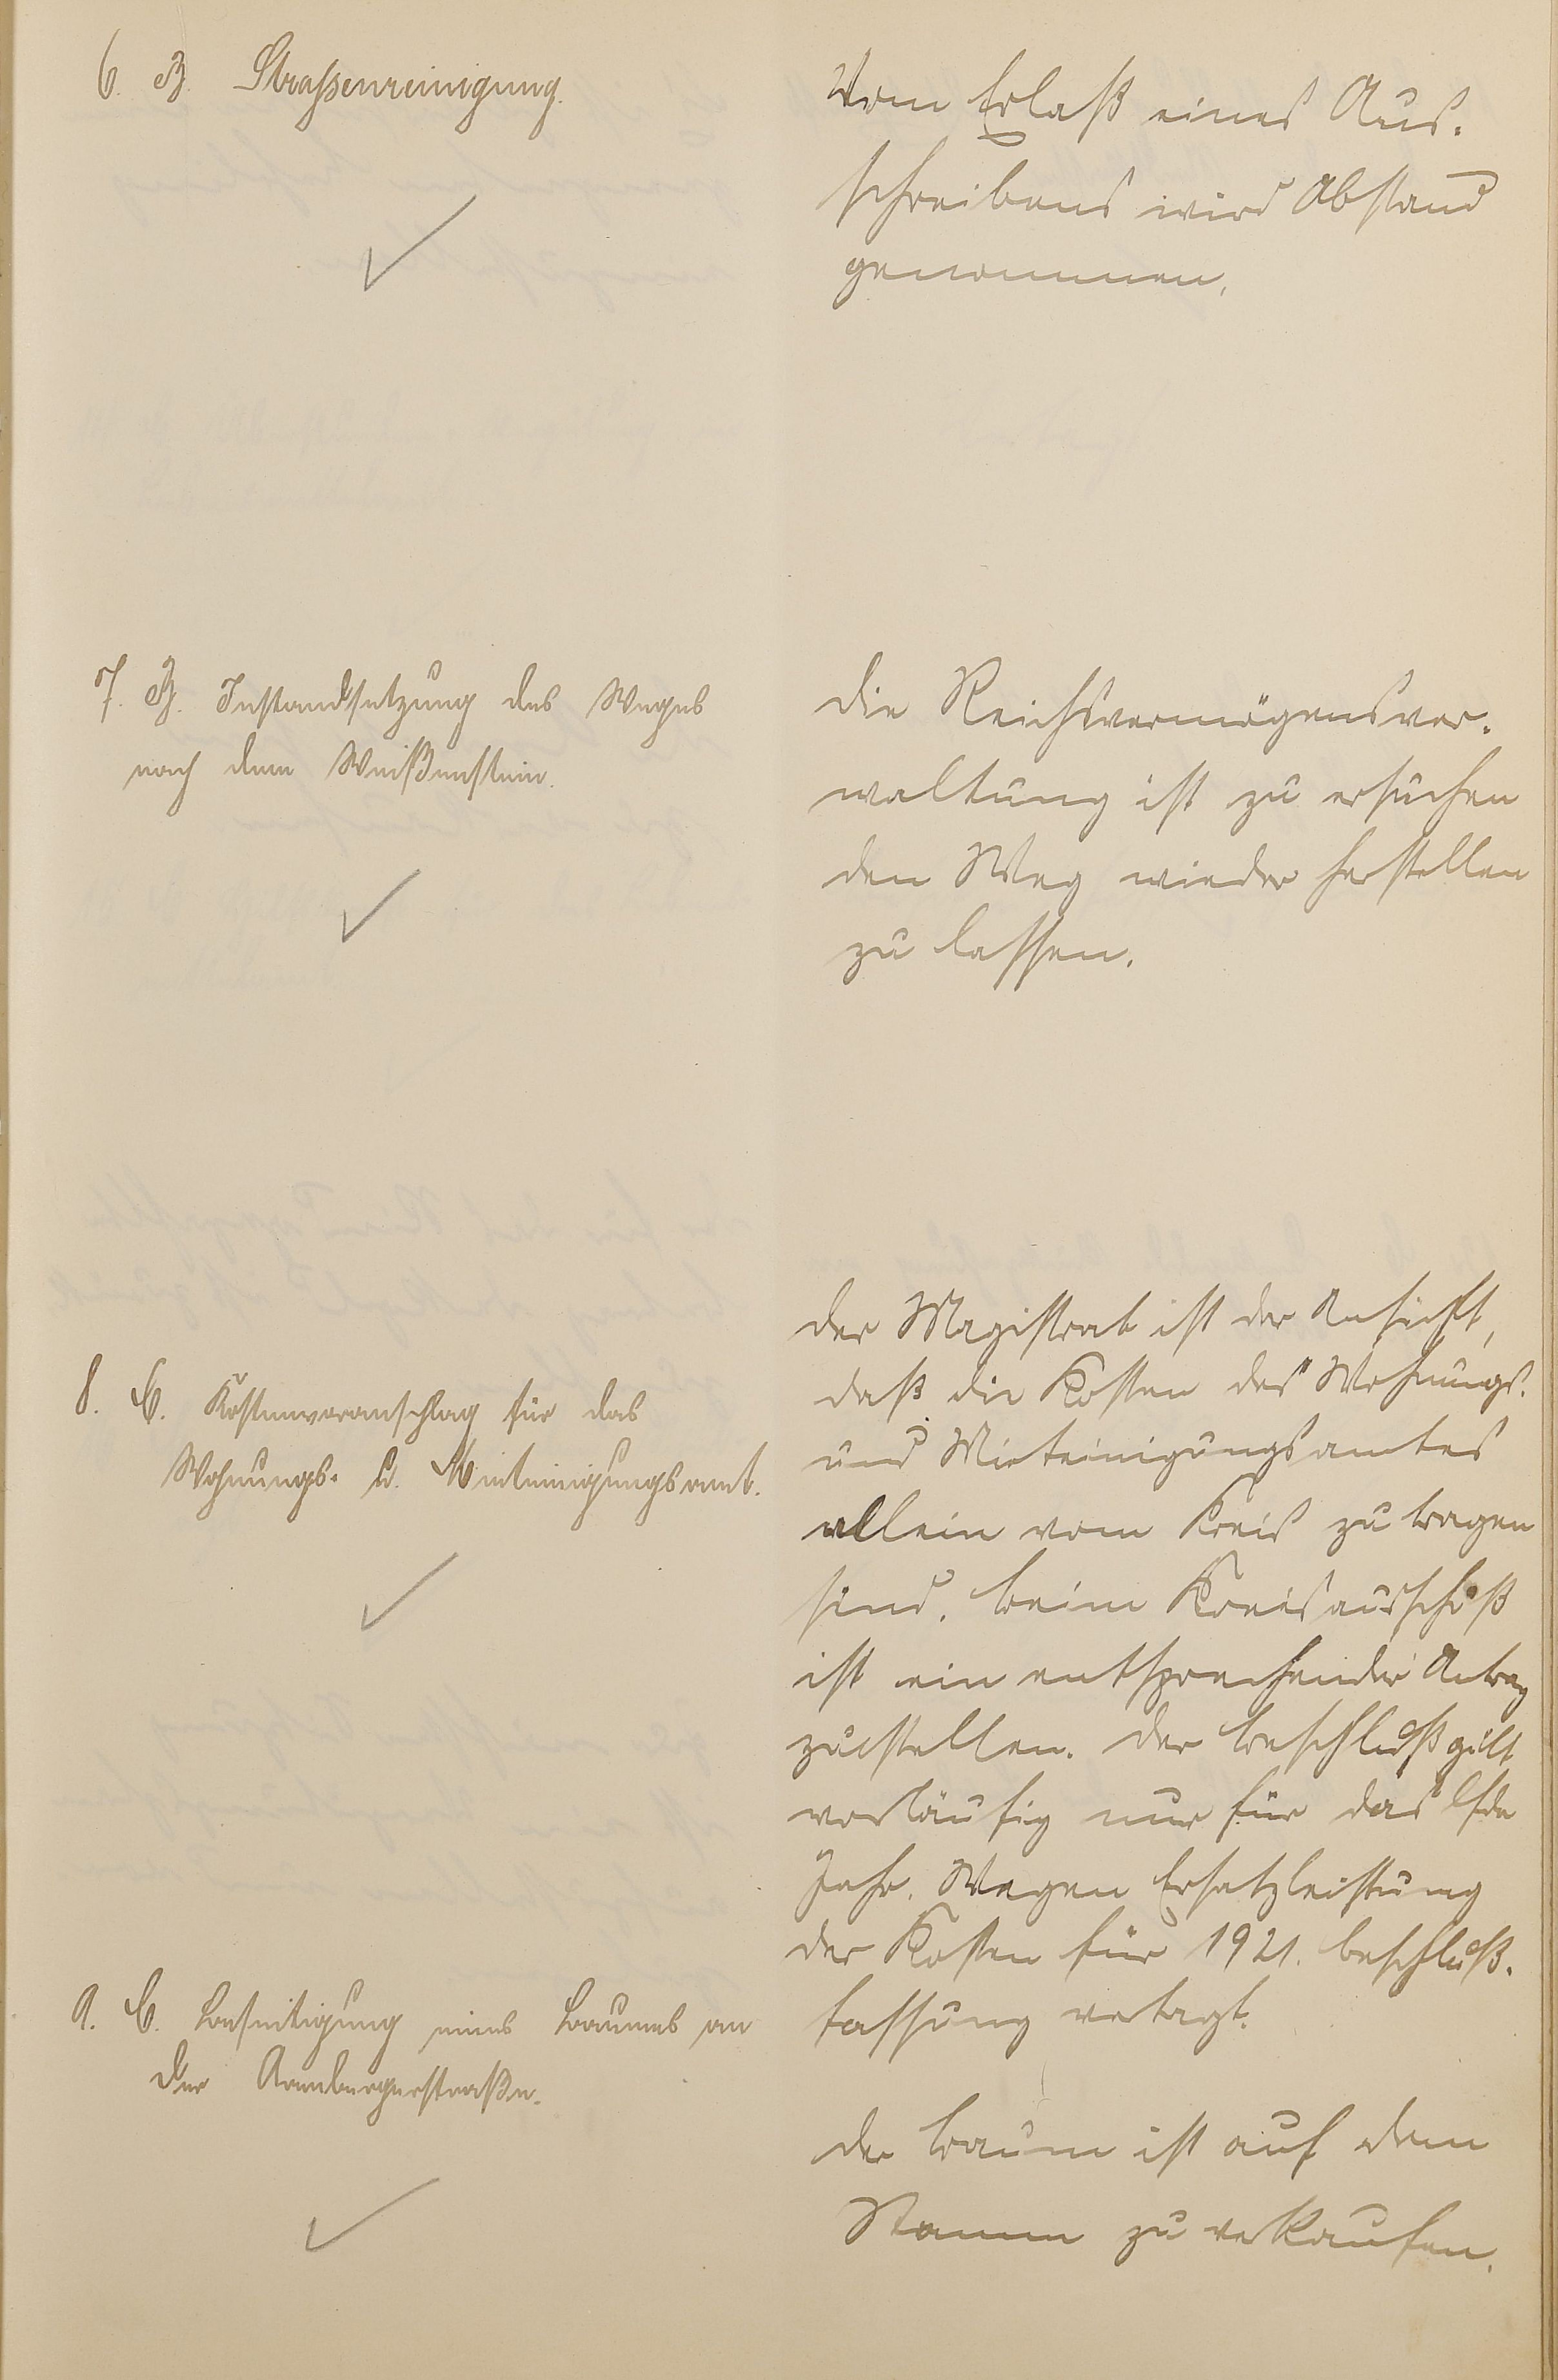 6. B. Straßenreinigung.
Vom Erlaß eines Aus-
schreibens wird Abstand
genommen.
7. B. Instandsetzung des Weges
nach dem Weißenstein.
Die Reichsvermögensver-
waltung ist zu ersuchen
den Weg wieder herstellen
zu lassen.
8. C. Kostenvoranschlag für das
Wohnungs- u. Mieteinigungsamt.
Der Magistrat ist der Ansicht,
daß die Kosten des Wohnungs-
und Mieteinigungsamtes
allein vom Kreis zu tragen
sind. Beim Kreisausschuß
ist ein entsprechender Antrag
zu stellen. Der Beschluß gilt
vorläufig nur für das lfde
Jahr. Wegen Ersatzleistung
der Kosten für 1921. Beschluß-
fassung vertagt.
9. C. Beseitigung eines Baumes an
der
Der Baum ist auf dem
Stamm zu verkaufen.